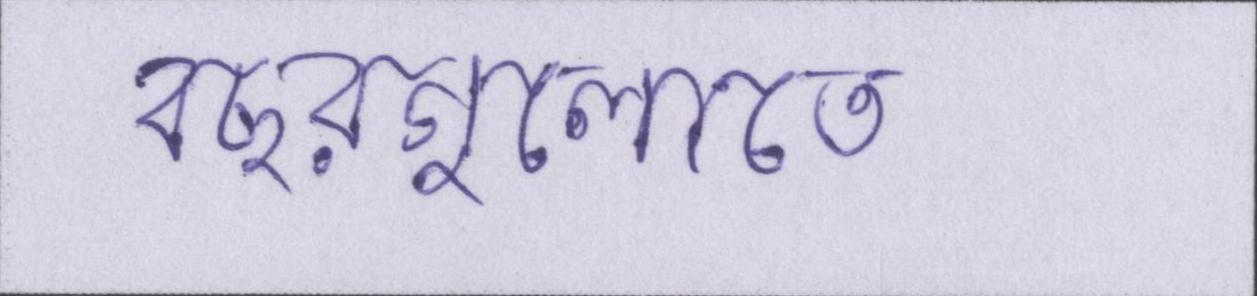 বছরগুলোতে